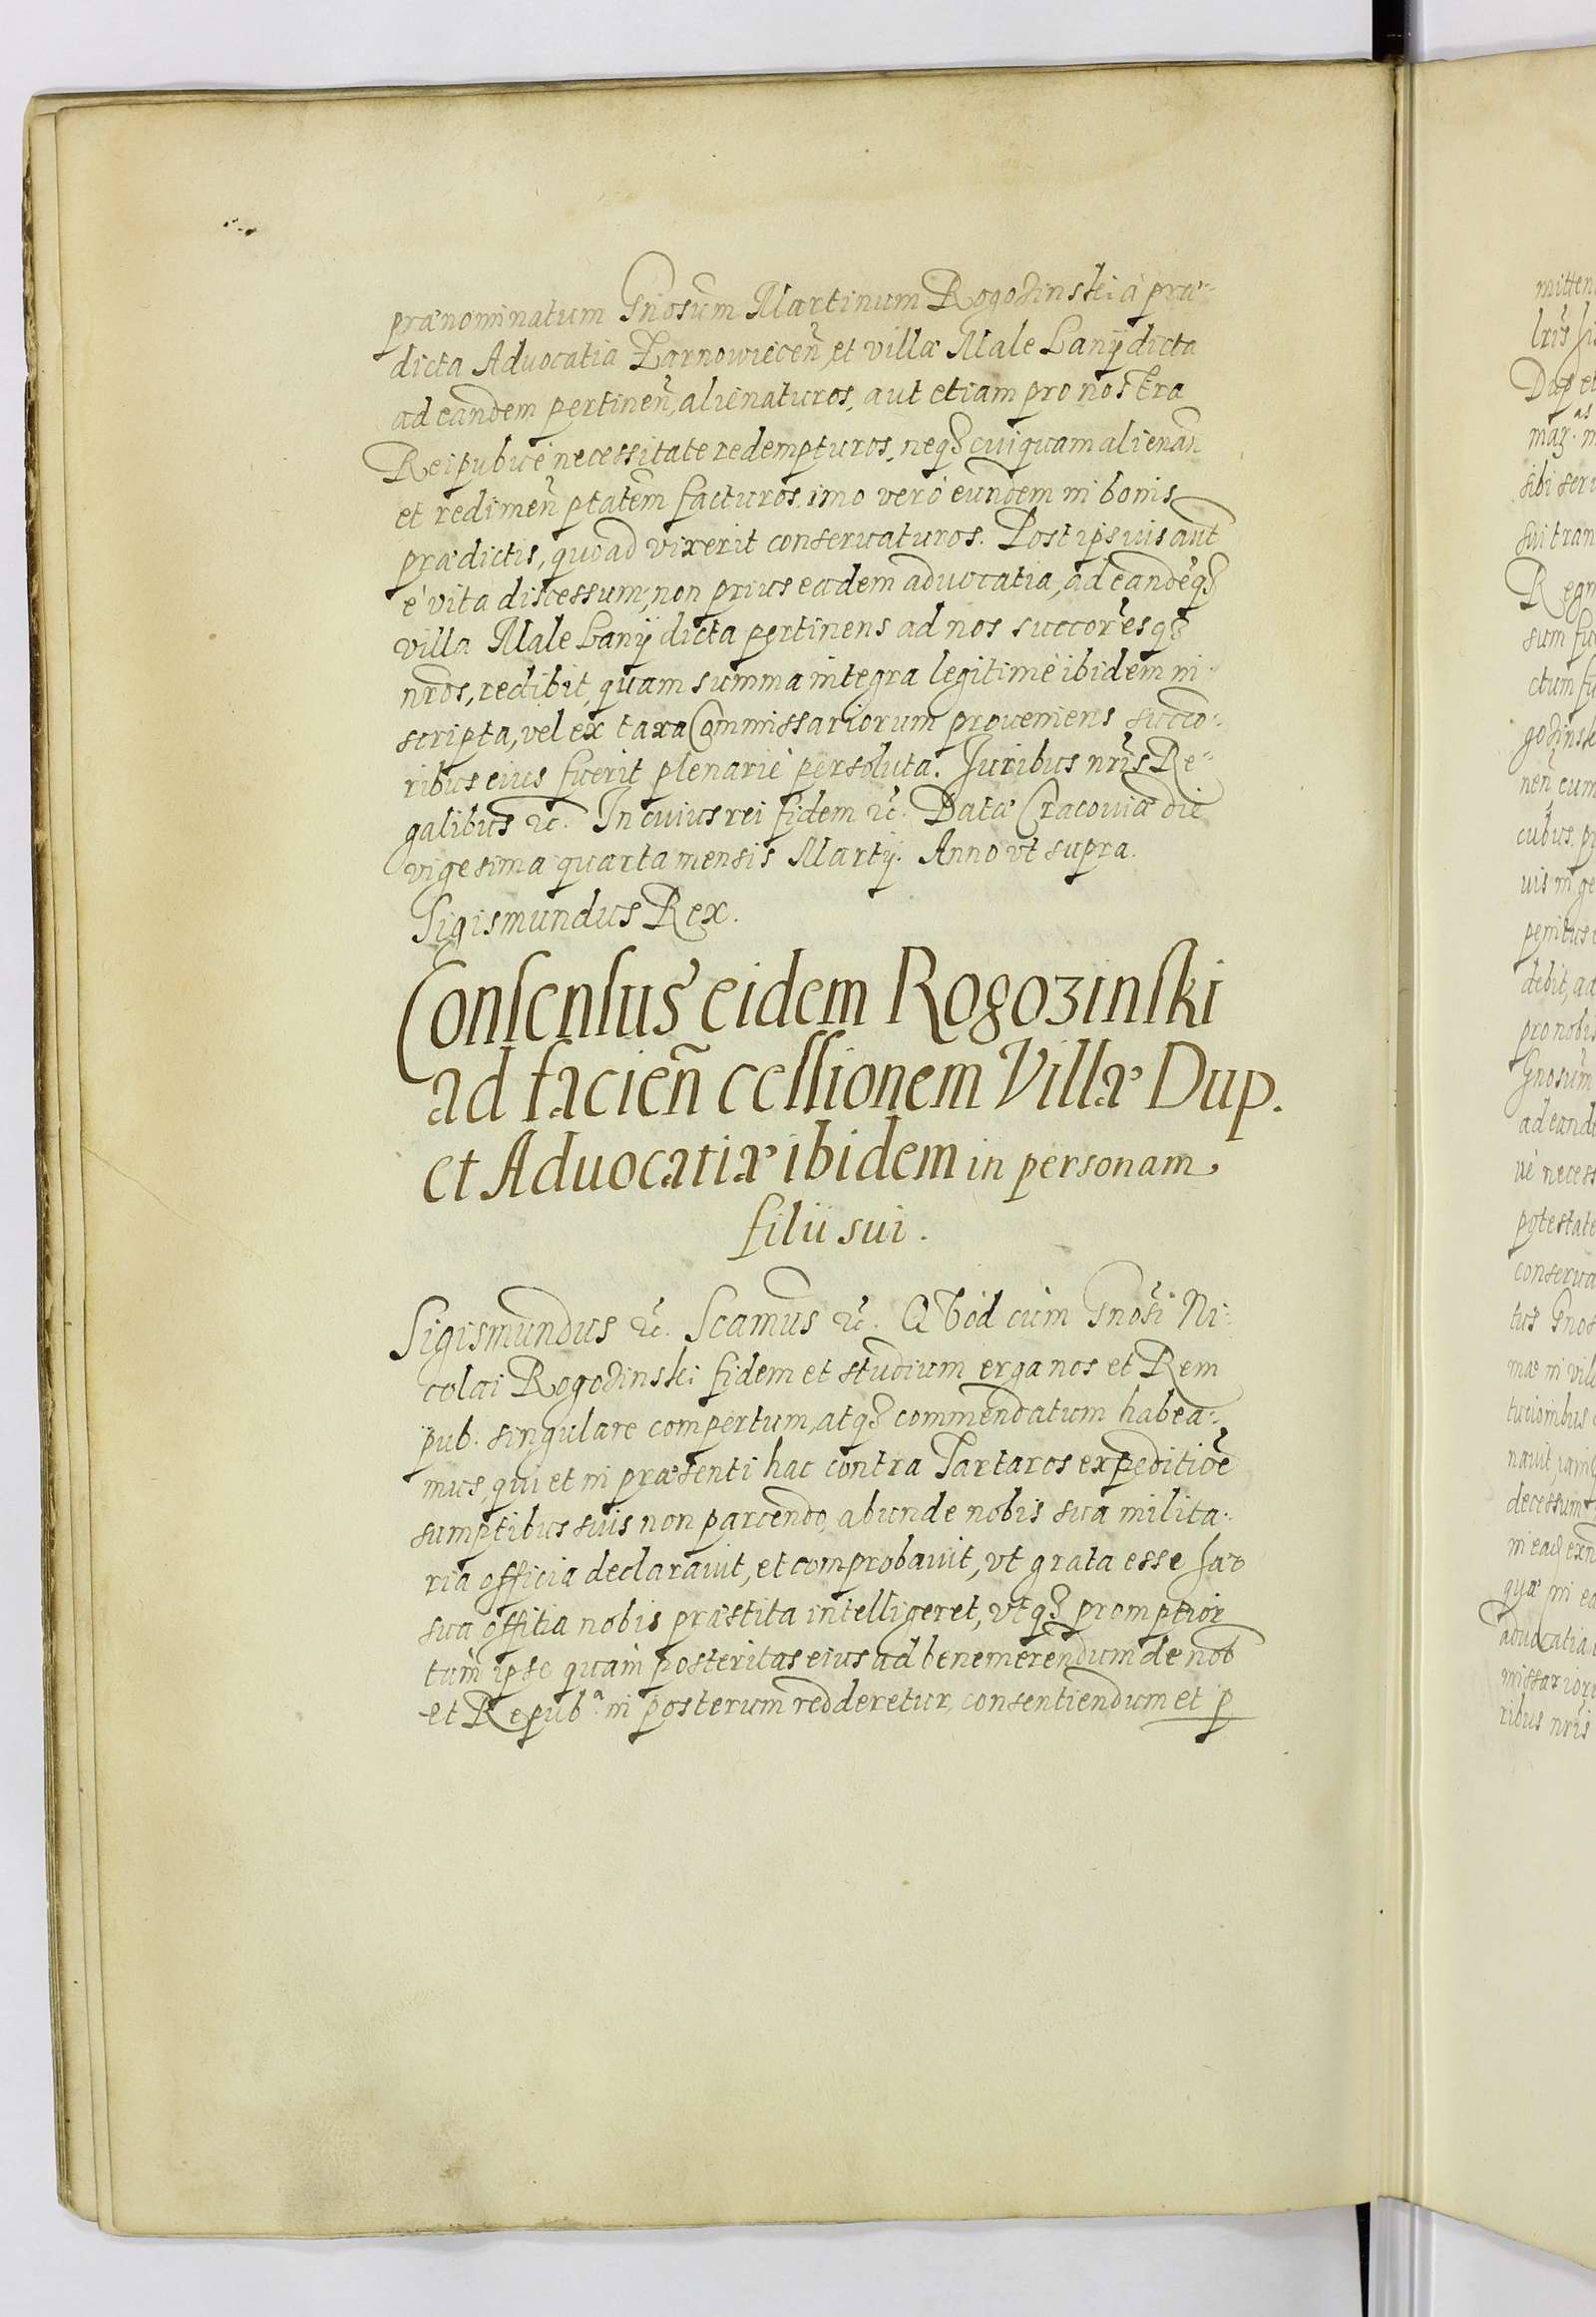 prænominatum Gnosum Martinum Rogozinski à præ-
dicta Aduocatia Zarnowiecen̄, et villæ Male Lanÿ dicta
ad eandem pertinen̄, alienaturos, aut etiam pro nostra
Reipubucę́ necessitate redempturos, neqȝ cuiquam alienan̄
et redimen̄ ptatem facturos, imo vero eundem in bonis
prædictis, quoad vixerit conseruaturos. Post ipsius aut̄
è vita discessum, non prius eadem aduocatia, ad eandēqȝ
villa Male Lanÿ dicta pertinens ad nos succoresqȝ
nr̄os, redibit, quam summa integra legitimè ibidem in-
scripta, vel ex taxa Commissariorum proueniens succo-
ribus eius fuerit plenariè persoluta. Juribus nr̄is Re-
galibus ꝛc. In cuius rei fidem ꝛc. Datæ Cracouiæ die
vigesima quarta mensis Martÿ. Anno vt supra.
Sigismundus Rex.
Consensus eidem Rogozinski
ad facien̄ cessionem Villæ Dup.
et Aduocatiæ ibidem in personam
filii sui.
Sigismundus ꝛc. Scamus ꝛc. QVod cùm Gnosi Ni-
colai Rogozinski fidem et studium erga nos et Rem
pub. singulare compertum, atqȝ commendatum habea-
mus, qui et in præsenti hac contra Tartaros expeditiōe
sumptibus suis non parcendo, abunde nobis sua milita-
ria officia declarauit, et comprobauit, vt grata esse hæc
sua offitia nobis præstita intelligeret, vtqȝ promptior
tùm ipse quàm posteritas eius ad benemerendum de nob
et Repubᵃ. in posterum redderetur, consentiendum et p
mitten
Dup et
sibi seru
sui tran
Regn
sum
ctum
godinsk
nen̄ cum
cubus. p
uis in ge
penitus
debit, ad
pro nobis
Gnosum
ad eande
necess
potestate
conserua
tus Gnos
mæ in vill
nauit,
decessum
in
quæ in ea
aduocatia
missarior
ribus nr̄is